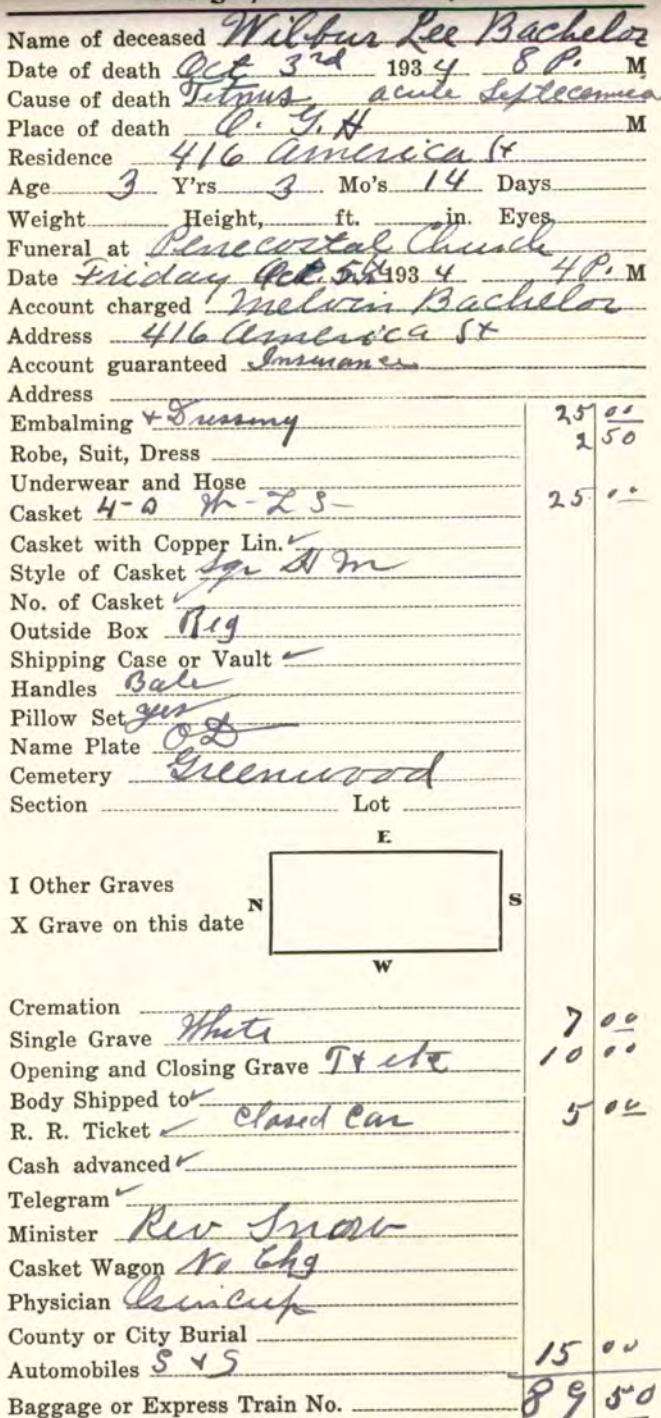 Name of deceased Wilbur Lee Bachelor
Date of death Oct 3rd 1934 8 P. M
Cause of death Tetnus acute Septecemica
Place of death O. G. H M
Residence 416 America St
Age 3 Y'rs 3 Mo's 14 Days
Weight Height, ft. in. Eyes
Funeral at Penecostal Church
Date Friday Oct. 5th 1934 4 P. M
Account charged Melvin Bachelor
Address 416 America St
Account guaranteed Insurance
Address
Embalming + Dressing 25 00
Robe, Suit, Dress 2 50
Underwear and Hose
Casket 4-0 W-L S- 25 00
Casket with Copper Lin. ✓
Style of Casket Sqr
No. of Casket ✓
Outside Box Reg
Shipping Case or Vault ✓
Handles Bale
Pillow Set yes
Name Plate O D
Cemetery Greenwood
Section Lot
E
I Other Graves
N S
X Grave on this date
W
Cremation
Single Grave White 7 00
Opening and Closing Grave T + etc 10 00
Body Shipped to ✓
R. R. Ticket ✓ Closed Car 5 00
Cash advanced ✓
Telegram ✓
Minister Rev Snow
Casket Wagon No Chg
Physician
County or City Burial
Automobiles S + S 15 00
Baggage or Express Train No. 89 50